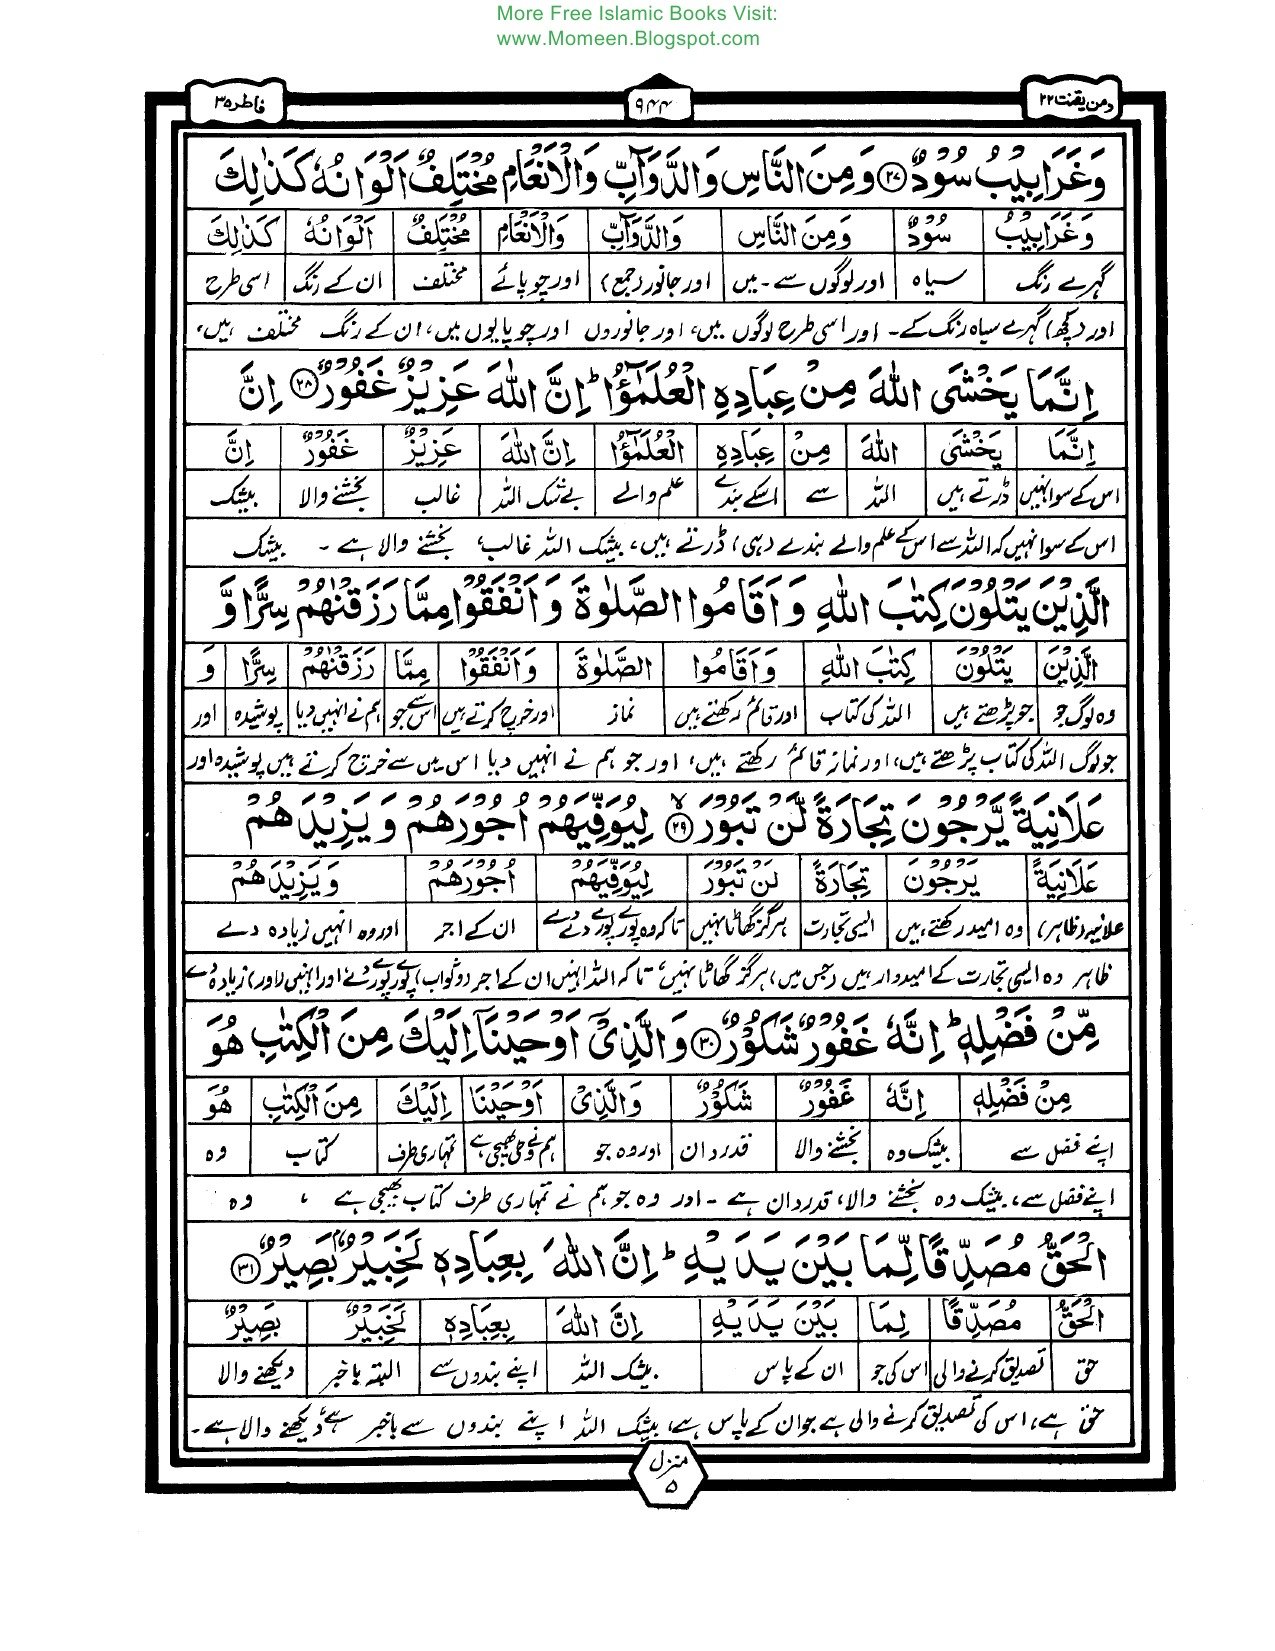 More Free Islamic Books Visit:
www.Momeen.Blogspot.com
ومن يقنت ٢٢
٩٤٤
فاطر ٣٥
وَغَرَابِيْبُ سُوْدٌ ﴿۲۷﴾ وَمِنَ النَّاسِ وَالدَّوَآبِّ وَالْاَنْعَامِ مُخْتَلِفٌ اَلْوَانُهٗ كَذٰلِكَ
وَغَرَابِيْبُ سُوْدٌ وَمِنَ النَّاسِ وَالدَّوَآبِّ وَالْاَنْعَامِ مُخْتَلِفٌ اَلْوَانُهٗ كَذٰلِكَ
گہرے رنگ سیاہ اور لوگوں سے۔ میں اور جانور (جمع) اور چوپائے مختلف ان کے رنگ اسی طرح
اور (کچھ) گہرے سیاہ رنگ کے۔ اور اسی طرح لوگوں میں، اور جانوروں اور چوپایوں میں، ان کے رنگ مختلف ہیں،
اِنَّمَا يَخْشَى اللّٰهَ مِنْ عِبَادِهِ الْعُلَمٰٓؤُا ؕ اِنَّ اللّٰهَ عَزِيْزٌ غَفُوْرٌ ﴿۲۸﴾ اِنَّ
اِنَّمَا يَخْشَى اللّٰهَ مِنْ عِبَادِهِ الْعُلَمٰٓؤُا اِنَّ اللّٰهَ عَزِيْزٌ غَفُوْرٌ اِنَّ
اس کے سوا نہیں ڈرتے ہیں اللہ سے اسکے بندے علم والے بے شک اللہ غالب بخشنے والا بیشک
اس کے سوا نہیں کہ اللہ سے اس کے علم والے بندے (ہی) ڈرتے ہیں، بیشک اللہ غالب، بخشنے والا ہے ۔ بیشک
الَّذِيْنَ يَتْلُوْنَ كِتٰبَ اللّٰهِ وَاَقَامُوا الصَّلٰوةَ وَاَنْفَقُوْا مِمَّا رَزَقْنٰهُمْ سِرًّا وَّ
الَّذِيْنَ يَتْلُوْنَ كِتٰبَ اللّٰهِ وَاَقَامُوا الصَّلٰوةَ وَاَنْفَقُوْا مِمَّا رَزَقْنٰهُمْ سِرًّا وَ
وہ لوگ جو جو پڑھتے ہیں اللہ کی کتاب اور قائم رکھتے ہیں نماز اور خرچ کرتے ہیں اس سے جو ہم نے انہیں دیا پوشیدہ اور
جو لوگ اللہ کی کتاب پڑھتے ہیں، اور نماز قائم رکھتے ہیں، اور جو ہم نے انہیں دیا اس میں سے خرچ کرتے ہیں پوشیدہ اور
عَلَانِيَةً يَّرْجُوْنَ تِجَارَةً لَّنْ تَبُوْرَ ﴿۲۹﴾ لِيُوَفِّيَهُمْ اُجُوْرَهُمْ وَيَزِيْدَهُمْ
عَلَانِيَةً يَرْجُوْنَ تِجَارَةً لَنْ تَبُوْرَ لِيُوَفِّيَهُمْ اُجُوْرَهُمْ وَيَزِيْدَهُمْ
علانیہ (ظاہر) وہ امید رکھتے ہیں ایسی تجارت ہرگز گھاٹا نہیں تاکہ وہ پورے پورے دے ان کے اجر اور وہ انہیں زیادہ دے
ظاہر وہ ایسی تجارت کے امیدوار ہیں (جس میں) ہرگز گھاٹا نہیں، تاکہ اللہ انہیں ان کے اجر (و ثواب) پورے پورے دے اور انہیں (اور) زیادہ دے
مِّنْ فَضْلِهٖ ؕ اِنَّهٗ غَفُوْرٌ شَكُوْرٌ ﴿۳۰﴾ وَالَّذِيْٓ اَوْحَيْنَآ اِلَيْكَ مِنَ الْكِتٰبِ هُوَ
مِنْ فَضْلِهٖ اِنَّهٗ غَفُوْرٌ شَكُوْرٌ وَالَّذِيْٓ اَوْحَيْنَا اِلَيْكَ مِنَ الْكِتٰبِ هُوَ
اپنے فضل سے بیشک وہ بخشنے والا قدردان اور وہ جو ہم نے وحی بھیجی ہے تمہاری طرف کتاب وہ
اپنے فضل سے، بیشک وہ بخشنے والا، قدردان ہے ۔ اور وہ جو ہم نے تمہاری طرف کتاب بھیجی ہے ، وہ
الْحَقُّ مُصَدِّقًا لِّمَا بَيْنَ يَدَيْهِ ؕ اِنَّ اللّٰهَ بِعِبَادِهٖ لَخَبِيْرٌۢ بَصِيْرٌ ﴿۳۱﴾
الْحَقُّ مُصَدِّقًا لِمَا بَيْنَ يَدَيْهِ اِنَّ اللّٰهَ بِعِبَادِهٖ لَخَبِيْرٌ بَصِيْرٌ
حق تصدیق کرنے والی اس کی جو ان کے پاس بیشک اللہ اپنے بندوں سے البتہ باخبر دیکھنے والا
حق ہے، اس کی تصدیق کرنے والی ہے جو ان کے پاس ہے، بیشک اللہ اپنے بندوں سے باخبر ہے، دیکھنے والا ہے۔
منزل
۵